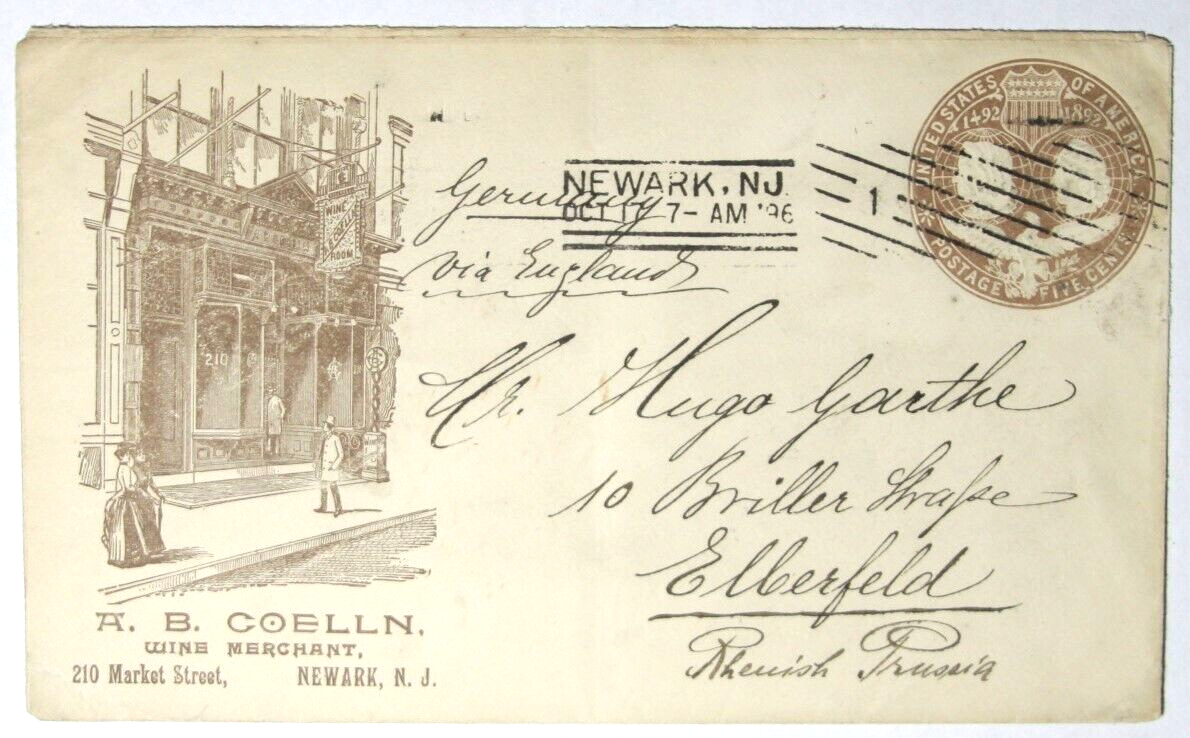 WINE
ROOM
210
A. B. COELLN,
WINE MERCHANT,
210 Market Street, NEWARK, N. J.
Germany
via England
NEWARK, N.J.
OCT 17 7-AM '96
1
UNITED STATES OF AMERICA
1492 1892
POSTAGE FIVE CENTS
Hr. Hugo Garthe
10 Briller Straße
Elberfeld
Rhenish Prussia